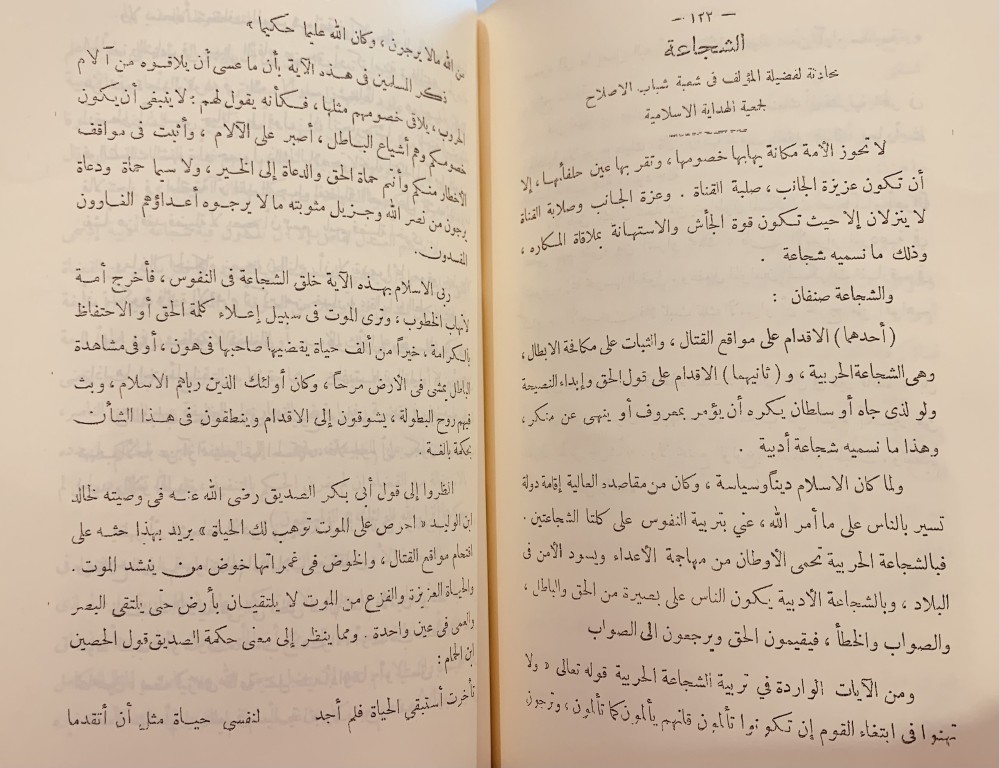 — ١٢٣ —
الشجاعة
محادثة لفضيلة المؤلف فى شعبة شباب الاصلاح
لجمعية الهداية الاسلامية
لا تحوز الأمة مكانة يهابها خصومها، وتقر بها عين حلفائها، إلا
أن تكون عزيزة الجانب، صلبة القناة . وعزة الجانب وصلابة القناة
لا ينزلان إلا حيث تكون قوة الجأش والاستهانة بملاقاة المكاره ،
وذلك ما نسميه شجاعة .
والشجاعة صنفان :
( أحدهما ) الاقدام على مواقع القتال ، والثبات على مكافحة الابطال ،
وهى الشجاعة الحربية ، و ( ثانيهما ) الاقدام على قول الحق وإبداء النصيحة
ولو لذى جاه أو سلطان يكره أن يؤمر بمعروف أو ينهى عن منكر ،
وهذا ما نسميه شجاعة أدبية .
ولما كان الاسلام ديناً وسياسة ، وكان من مقاصده العالية إقامة دولة
تسير بالناس على ما أمر الله ، عني بتربية النفوس على كلتا الشجاعتين .
فبالشجاعة الحربية تحمى الأوطان من مهاجمة الأعداء ويسود الأمن فى
البلاد ، وبالشجاعة الأدبية يكون الناس على بصيرة من الحق والباطل ،
والصواب والخطأ ، فيقيمون الحق ويرجعون الى الصواب
ومن الآيات الواردة في تربية الشجاعة الحربية قوله تعالى « ولا
تهنوا فى ابتغاء القوم إن تكونوا تألمون فانهم يألمون كما تألمون ، وترجون
من الله مالا يرجون ، وكان الله عليما حكيما »
ذكر المسلمين فى هذه الآية بأن ما عسى أن يلاقوه من آلام
الحروب ، يلاقى خصومهم مثلها ، فكأنه يقول لهم : لا ينبغى أن يكون
خصومكم وهم أشياع الباطل ، أصبر على الآلام ، وأثبت فى مواقف
الأخطار منكم وأنتم حماة الحق والدعاة إلى الخير ، ولا سيما حماة ودعاة
يرجون من نصر الله وجزيل مثوبته ما لا يرجوه أعداؤهم الغارون
المفسدون .
ربى الاسلام بهذه الآية خلق الشجاعة فى النفوس ، فأخرج أمة
لاتهاب الخطوب ، وترى الموت فى سبيل إعلاء كلمة الحق أو الاحتفاظ
بالكرامة ، خيراً من ألف حياة يقضيها صاحبها فى هون ، أو فى مشاهدة
الباطل يمشى فى الأرض مرحاً ، وكان أولئك الذين رباهم الاسلام ، وبث
فيهم روح البطولة ، يشوقون إلى الاقدام وينطقون فى هذا الشأن
بحكمة بالغة .
انظروا إلى قول أبى بكر الصديق رضى الله عنه فى وصيته لخالد
ابن الوليد « احرص على الموت توهب لك الحياة » يريد بهذا حثه على
اقتحام مواقع القتال ، والخوض فى غمراتها خوض من ينشد الموت .
والحياة العزيزة والفزع من الموت لا يلتقيان بأرض حتى يلتقى البصر
والعمى فى عين واحدة . ومما ينظر إلى معنى حكمة الصديق قول الحصين
ابن الحمام :
تأخرت أستبقي الحياة فلم أجد لنفسي حياة مثل أن أتقدما